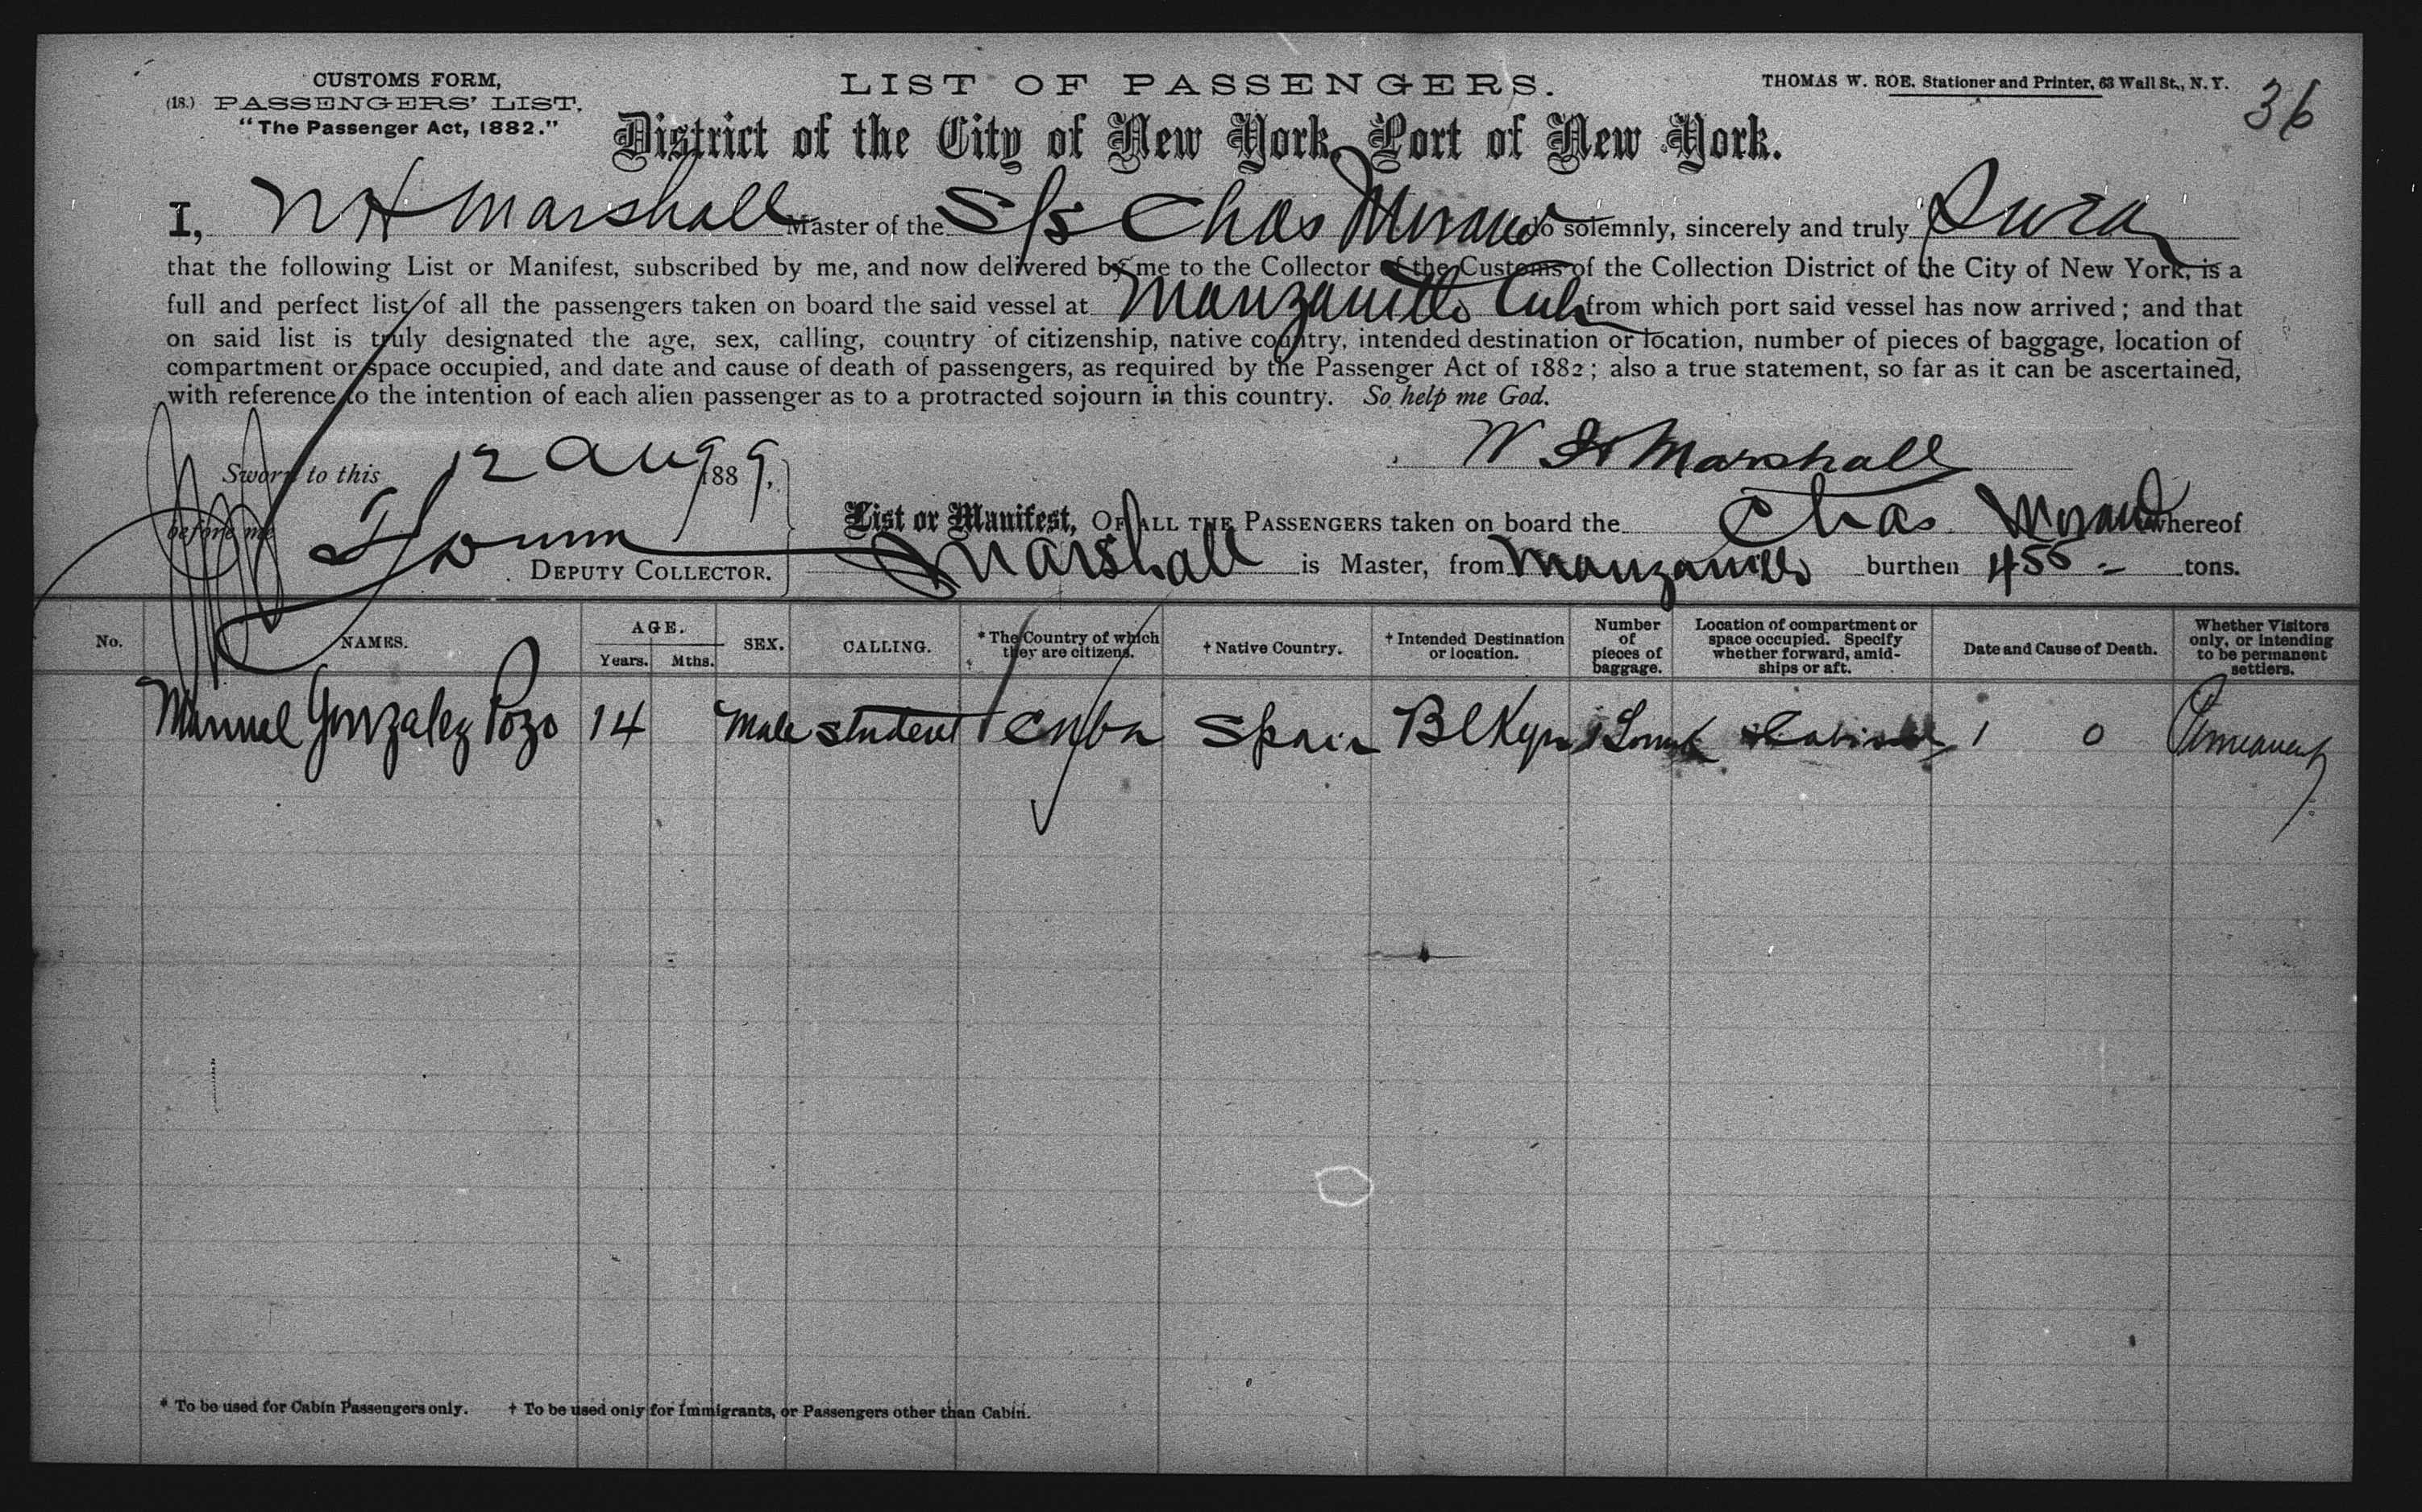 CUSTOMS FORM,
(18.) PASSENGERS' LIST.
"The Passenger Act, 1882."
LIST OF PASSENGERS.
THOMAS W. ROE. Stationer and Printer, 63 Wall St., N. Y.
36
District of the City of New York, Port of New York.
I, W H Marshall Master of the S/S Chas Morand do solemnly, sincerely and truly Swear
that the following List or Manifest, subscribed by me, and now delivered by me to the Collector of the Customs of the Collection District of the City of New York, is a
full and perfect list of all the passengers taken on board the said vessel at Manzanillo Cuba from which port said vessel has now arrived; and that
on said list is truly designated the age, sex, calling, country of citizenship, native country, intended destination or location, number of pieces of baggage, location of
compartment or space occupied, and date and cause of death of passengers, as required by the Passenger Act of 1882; also a true statement, so far as it can be ascertained,
with reference to the intention of each alien passenger as to a protracted sojourn in this country. So help me God.
Sworn to this 12 Aug 1889,
W H Marshall
before me
DEPUTY COLLECTOR.
List or Manifest, OF ALL THE PASSENGERS taken on board the Chas Morand whereof
Marshall is Master, from Manzanillo burthen 455 tons.
No. NAMES. AGE. Years. Mths. SEX. CALLING. * The Country of which they are citizens. † Native Country. † Intended Destination or location. Number of pieces of baggage. Location of compartment or space occupied. Specify whether forward, amidships or aft. Date and Cause of Death. Whether Visitors only, or intending to be permanent settlers.
Manuel Gonzalez Pozo 14 Male Student Cuba Spain BlKyn 1 0 Permanent
* To be used for Cabin Passengers only. † To be used only for Immigrants, or Passengers other than Cabin.